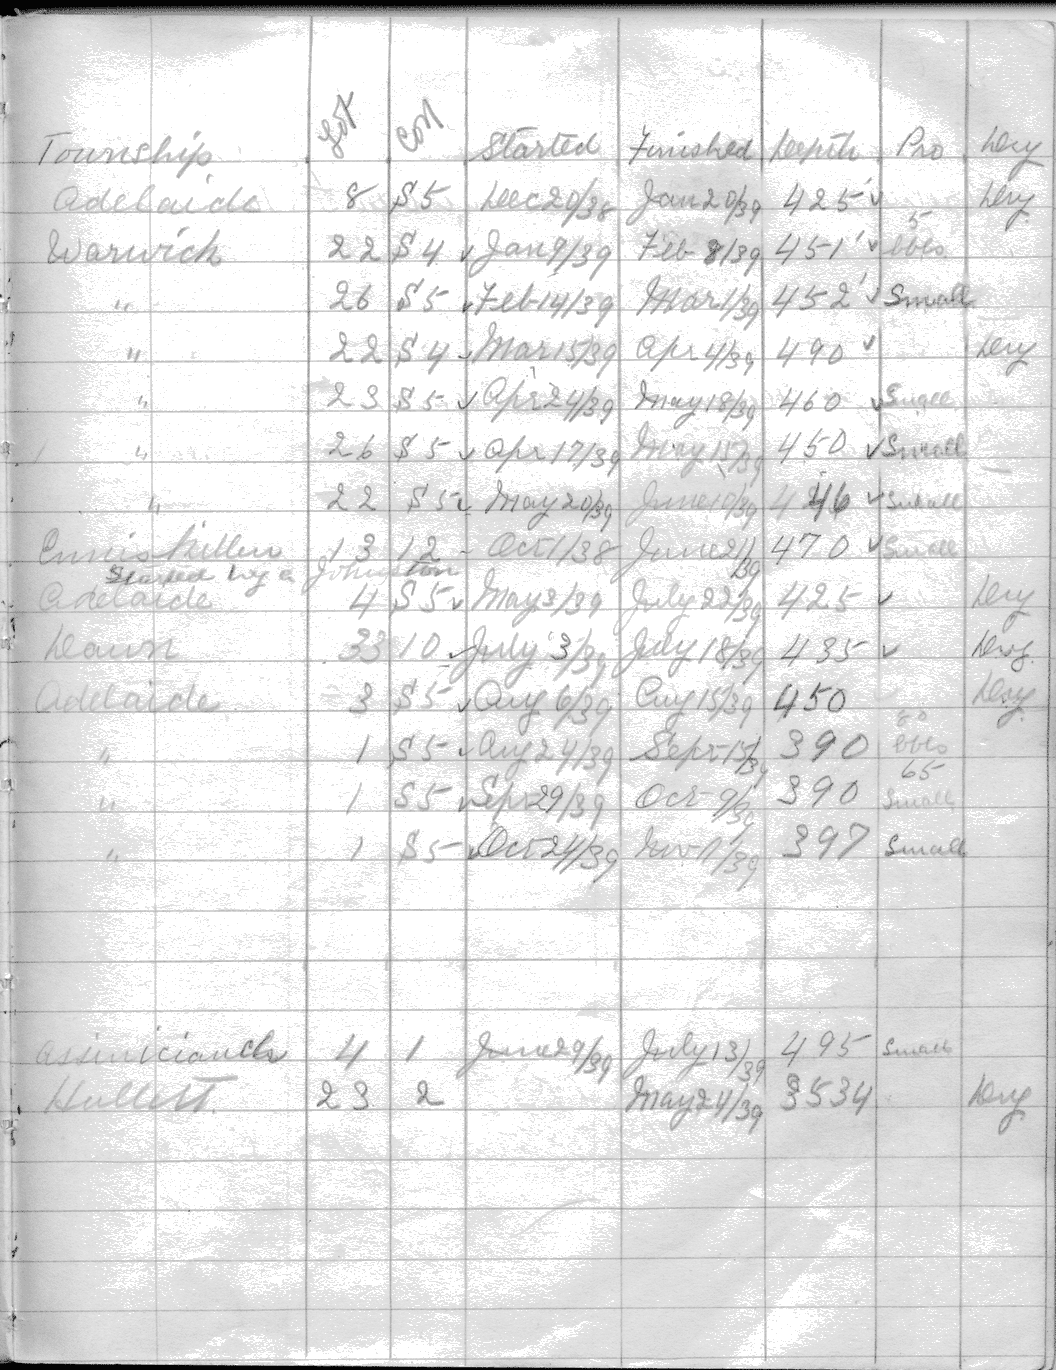 Township Lot Con Started Finished Depth Pro Dry
Adelaide 8 S 5 Dec 20/38 Jan 20/39 425' ✓ Dry
Warwick 22 S 4 ✓ Jan 9/39 Feb 8/39 451' ✓ 5 bbls
" 26 S 5 ✓ Feb 14/39 Mar 1/39 452' ✓ Small
" 22 S 4 ✓ Mar 15/39 Apr 4/39 490 ✓ Dry
" 23 S 5 ✓ Apr 24/39 May 18/39 460 ✓ Small
" 26 S 5 ✓ Apr 17/39 May 15/39 450 ✓ Small
" 22 S 5 ✓ May 20/39 June 10/39 446 ✓ Small
Enniskillen 13 12 - Oct 1/38 June 21/39 470 ✓ Small
Started by a Johnston
Adelaide 4 S 5 ✓ May 3/39 July 22/39 425 ✓ Dry
Dawn 33 10 ✓ July 3/39 July 18/39 435 ✓ Dry
Adelaide 3 S 5 ✓ Aug 6/39 Aug 15/39 450 Dry
" 1 S 5 ✓ Aug 24/39 Sept 15/39 390 80 bbls
" 1 S 5 ✓ Sept 29/39 Oct 9/39 390 65 Small
" 1 S 5 ✓ Oct 24/39 Nov /39 397 Small
4 1 June 29/39 July 13/39 495 Small
Hullett 23 2 May 24/39 3534 Dry